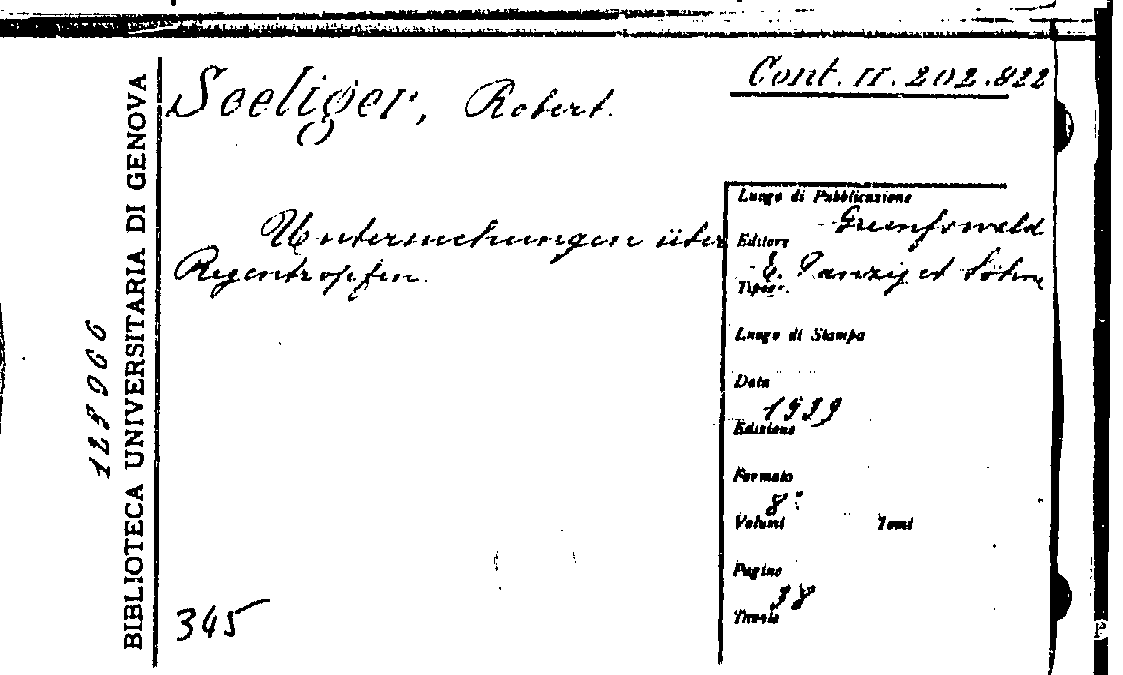 Cont. II. 202.822
Seeliger, Robert.
Untersuchungen über
Regentropfen.
Luogo di Pubblicazione
Greifswald
Editore
E. Panzig et Söhne
Tipogr.
Luogo di Stampa
Data
1939
Edizione
Formato
8°
Volumi Tomi
Pagine
38
Tavole
345
BIBLIOTECA UNIVERSITARIA DI GENOVA